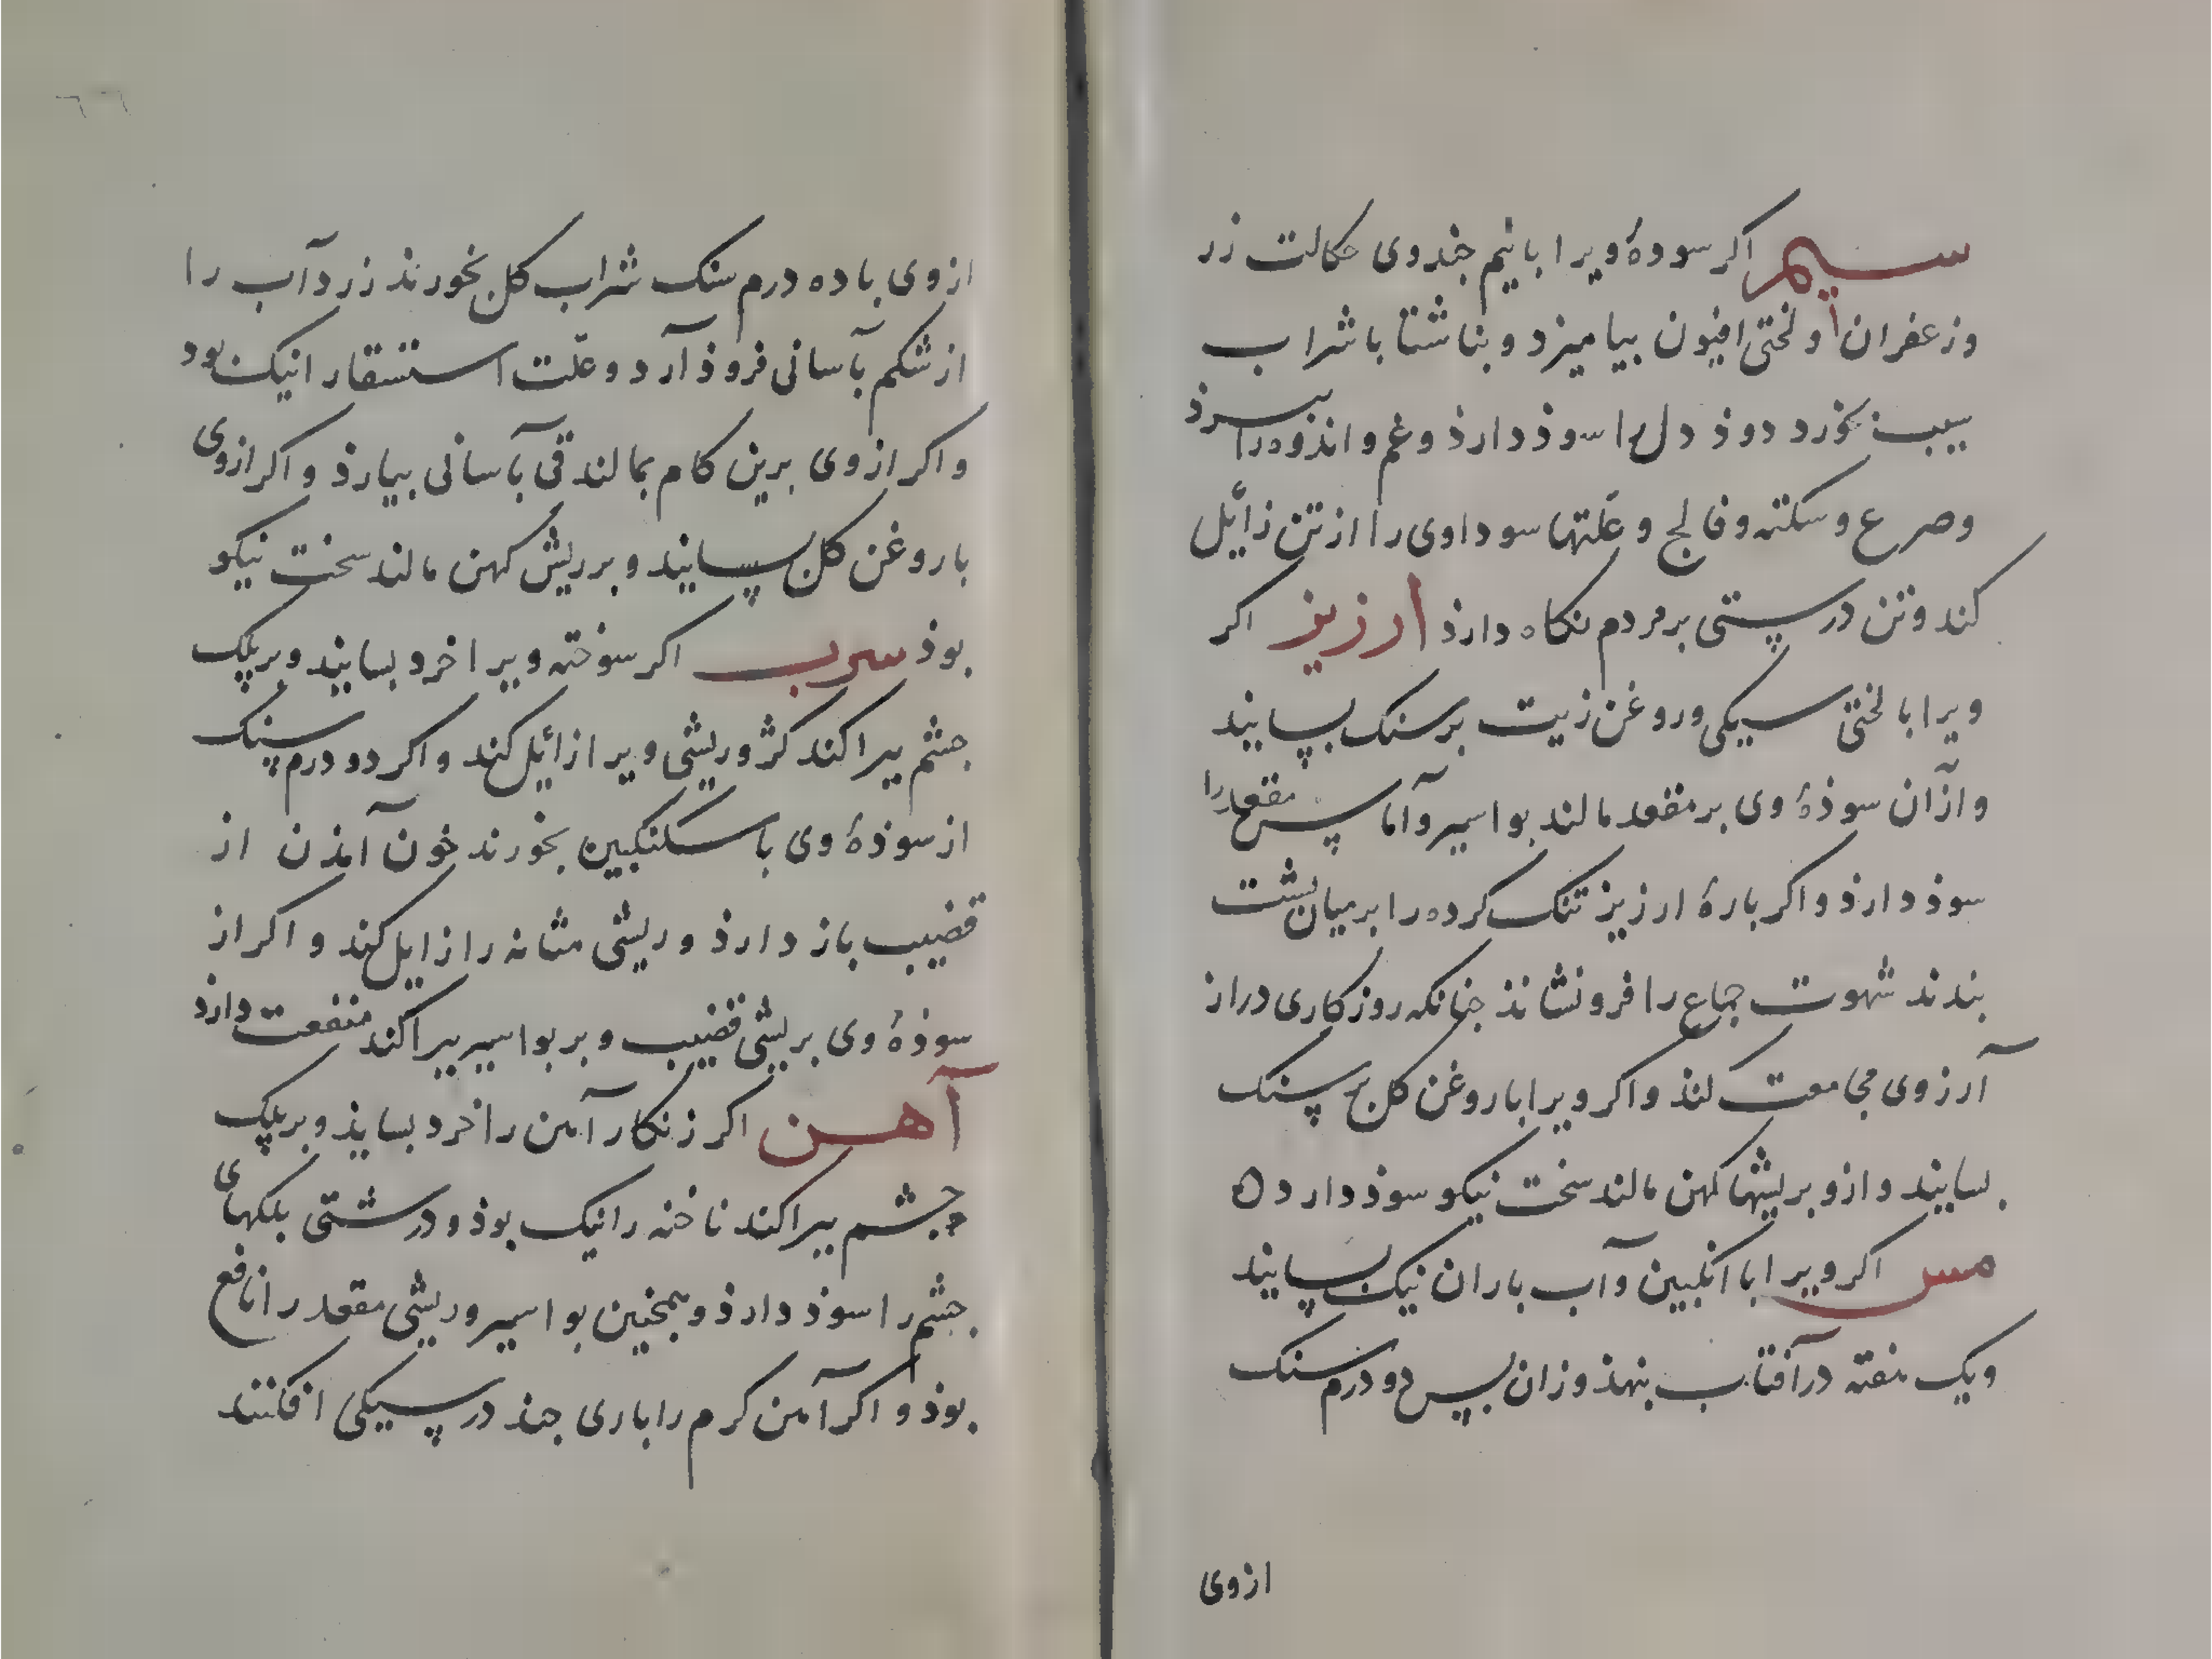 سیم اکر سودهٔ ویرا بانیم جندوی حکالت زر
وزعفران و لختی افیون بیامیزد و بناشتا باشراب
سیب بخورد دوذ دل را سوذ دارذ وغم واندوه را ببرذ
وصرع وسکته وفالج و علّتهاء سوداوی را از تن زائل
کند وتن درستی بر مردم نکاه دارذ ارزیز اکر
ویرا بالختی سیکی وروغن زیت برسنک بسایند
وازآن سوذهٔ وی بر مقعد مالند بواسیر وآماس مقعد را
سوذ دارذ واکر بارهٔ ارزیز تنک کرده را بر میان بشت
بندند شهوت جماع را فرونشاند جنانکه روزکاری دراز
آرزوی مجامعت نکند واکر ویرا باروغن کل بر سنک
بسایند وازو بریشهاء کهن مالند سخت نیکو سوذ دارد ه
مس اکر ویرا با انکبین وآب باران نیک بسایند
ویک هفته در آفتاب بنهذ وزان بس دو درم سنک
ازوی
ازوی باده درم سنک شراب کل بخورند زردآب را
از شکم بآسانی فروذ آرد وعلّت استسقا را نیک بود
واکر ازوی برین کام بمالند قی بآسانی بیارذ واکر ازوی
باروغن کل بسایند وبر ریش کهن مالند سخت نیکو
بوذ سرب اکر سوخته ویرا خرد بسایند وبربلک
جشم براکند کژ وریشی ویرا زائل کند واکر دو درم سنک
از سوذهٔ وی با سکنکبین بخورند خون آمذن از
قضیب باز دارذ وریشی مثانه را زایل کند و اکر از
سوذهٔ وی بریشی قضیب و بر بواسیر براکند منفعت دارذ
آهن اکر زنکار آهن را خرد بسایذ وبربلک
جشم براکند ناخنه را نیک بوذ ودرشتی بلکهای
جشم را سوذ دارذ وهمجنین بواسیر وریشی مقعد را نافع
بوذ و اکر آهن کرم را باری جند در سیکی افکنند